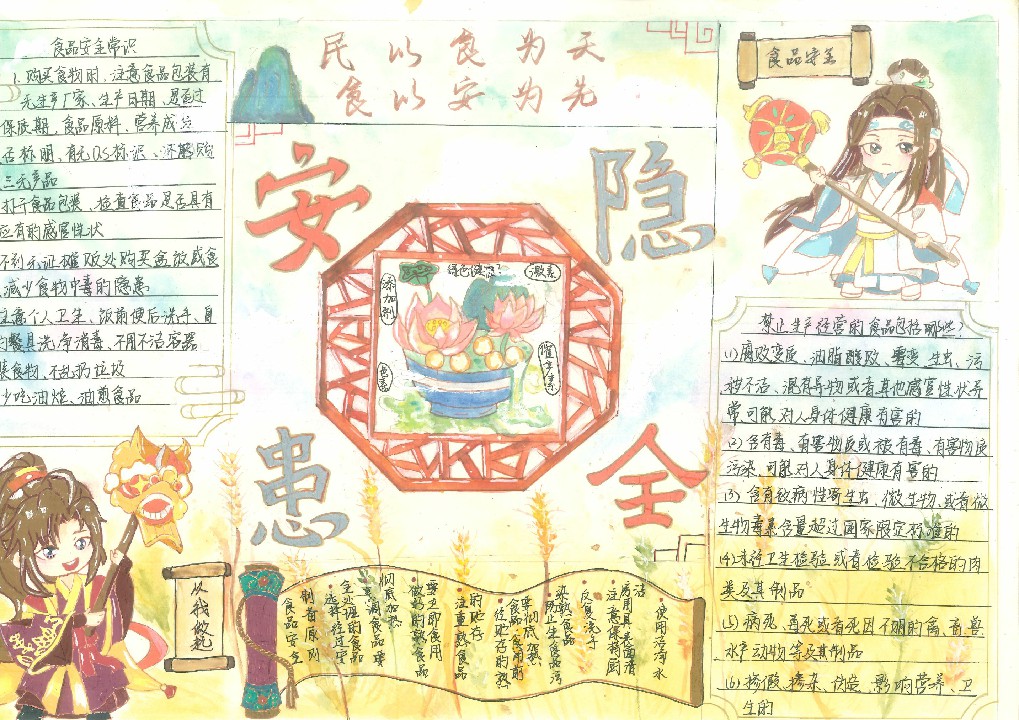 食品安全常识
1. 购买食物时、注意食品包装有
无生产厂家、生产日期、是否过
保质期，食品原料、营养成分
否标明、有无QS标识、不能购
三无产品
打开食品包装、检查食品是否具有
应有的感官性状
不到无证摊贩处购买盒饭或食
减少食物中毒的隐患
注意个人卫生、饭前便后洗手、自
餐具洗净消毒、不用不洁容器
装食物、不乱扔垃圾
少吃油炸、油煎食品
民以食为天
食以安为先
安
隐
患
全
绿色健康?
激素
添加剂
色素
食品安全
禁止生产经营的食品包括哪些?
(1)腐败变质、油脂酸败、霉变、生虫、污
秽不洁、混有异物或者其他感官性状异
常可能对人身体健康有害的
(2)含有毒、有害物质或被有毒、有害物质
污染，可能对人身体健康有害的
(3)含有致病性寄生虫、微生物、或者微
生物毒素含量超过国家限定标准的
(4)未经卫生检验或者检验不合格的肉
类及其制品
(5)病死、毒死或者死因不明的禽、畜、兽
水产动物等及其制品
(6)掺假、掺杂、伪造、影响营养、卫
生的
从我做起
·使用洁净水
洁
房用具表面清
·注意保持厨
反复洗手
杂熟食品
·防止生食品污
要彻底加热
食品，食用前
·经贮存的熟
的贮存
·注重熟食品
要立即食用
·做好的熟食品
彻底加热
·烹调食品要
全处理的食品
·选择经过安
制备原则
食品安全